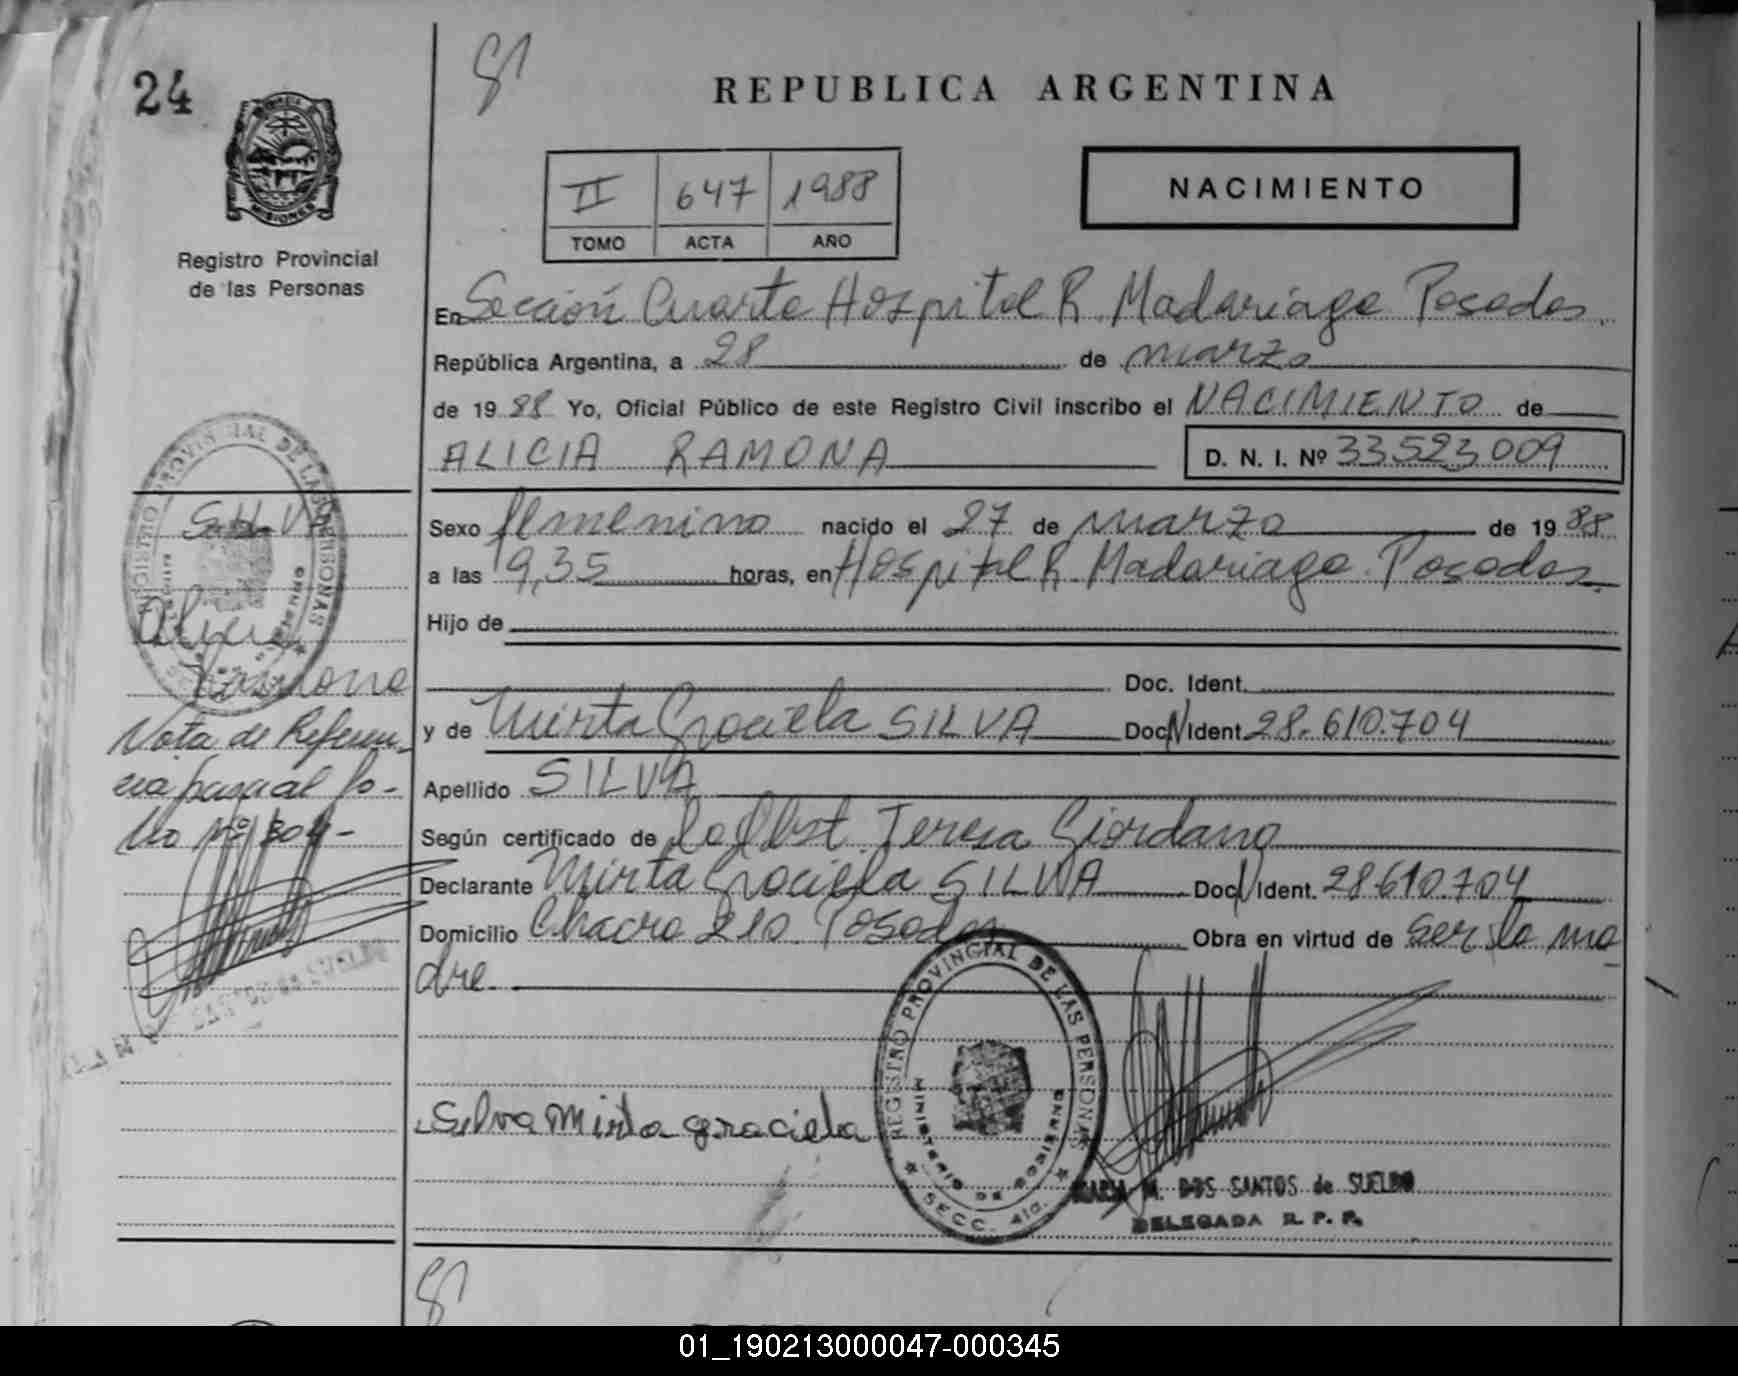 24
81
REPUBLICA ARGENTINA
II 647 1988
TOMO ACTA AÑO
NACIMIENTO
MISIONES
Registro Provincial
de las Personas
En Sección Cuarta Hospital R. Madariaga Posadas.
República Argentina, a 28 de marzo
de 1988 Yo, Oficial Público de este Registro Civil inscribo el NACIMIENTO de
ALICIA RAMONA D. N. I. Nº 33523009
Sexo femenino nacido el 27 de marzo de 1988
a las 19,35 horas, en Hospital R. Madariaga. Posadas.
Hijo de
Doc. Ident.
y de Mirta Graciela SILVA Doc N Ident. 28.610.704
Apellido SILVA
Según certificado de la Obst. Teresa Giordano
Declarante Mirta Graciela SILVA Doc N Ident. 28610.704
Domicilio Chacra 210. Posadas Obra en virtud de ser la ma
dre.
SILVA
Alicia
Ramona
Nota de Referen-
cia parcial fo-
lio Nº 304-
REGISTRO PROVINCIAL DE LAS PERSONAS
SANTOS de SUELDO
Silva Mirta graciela
REGISTRO PROVINCIAL DE LAS PERSONAS
MINISTERIO DE GOBIERNO
SECC. 4ta.
MARIA M. DOS SANTOS de SUELDO
DELEGADA R. P. P.
81
01_190213000047-000345